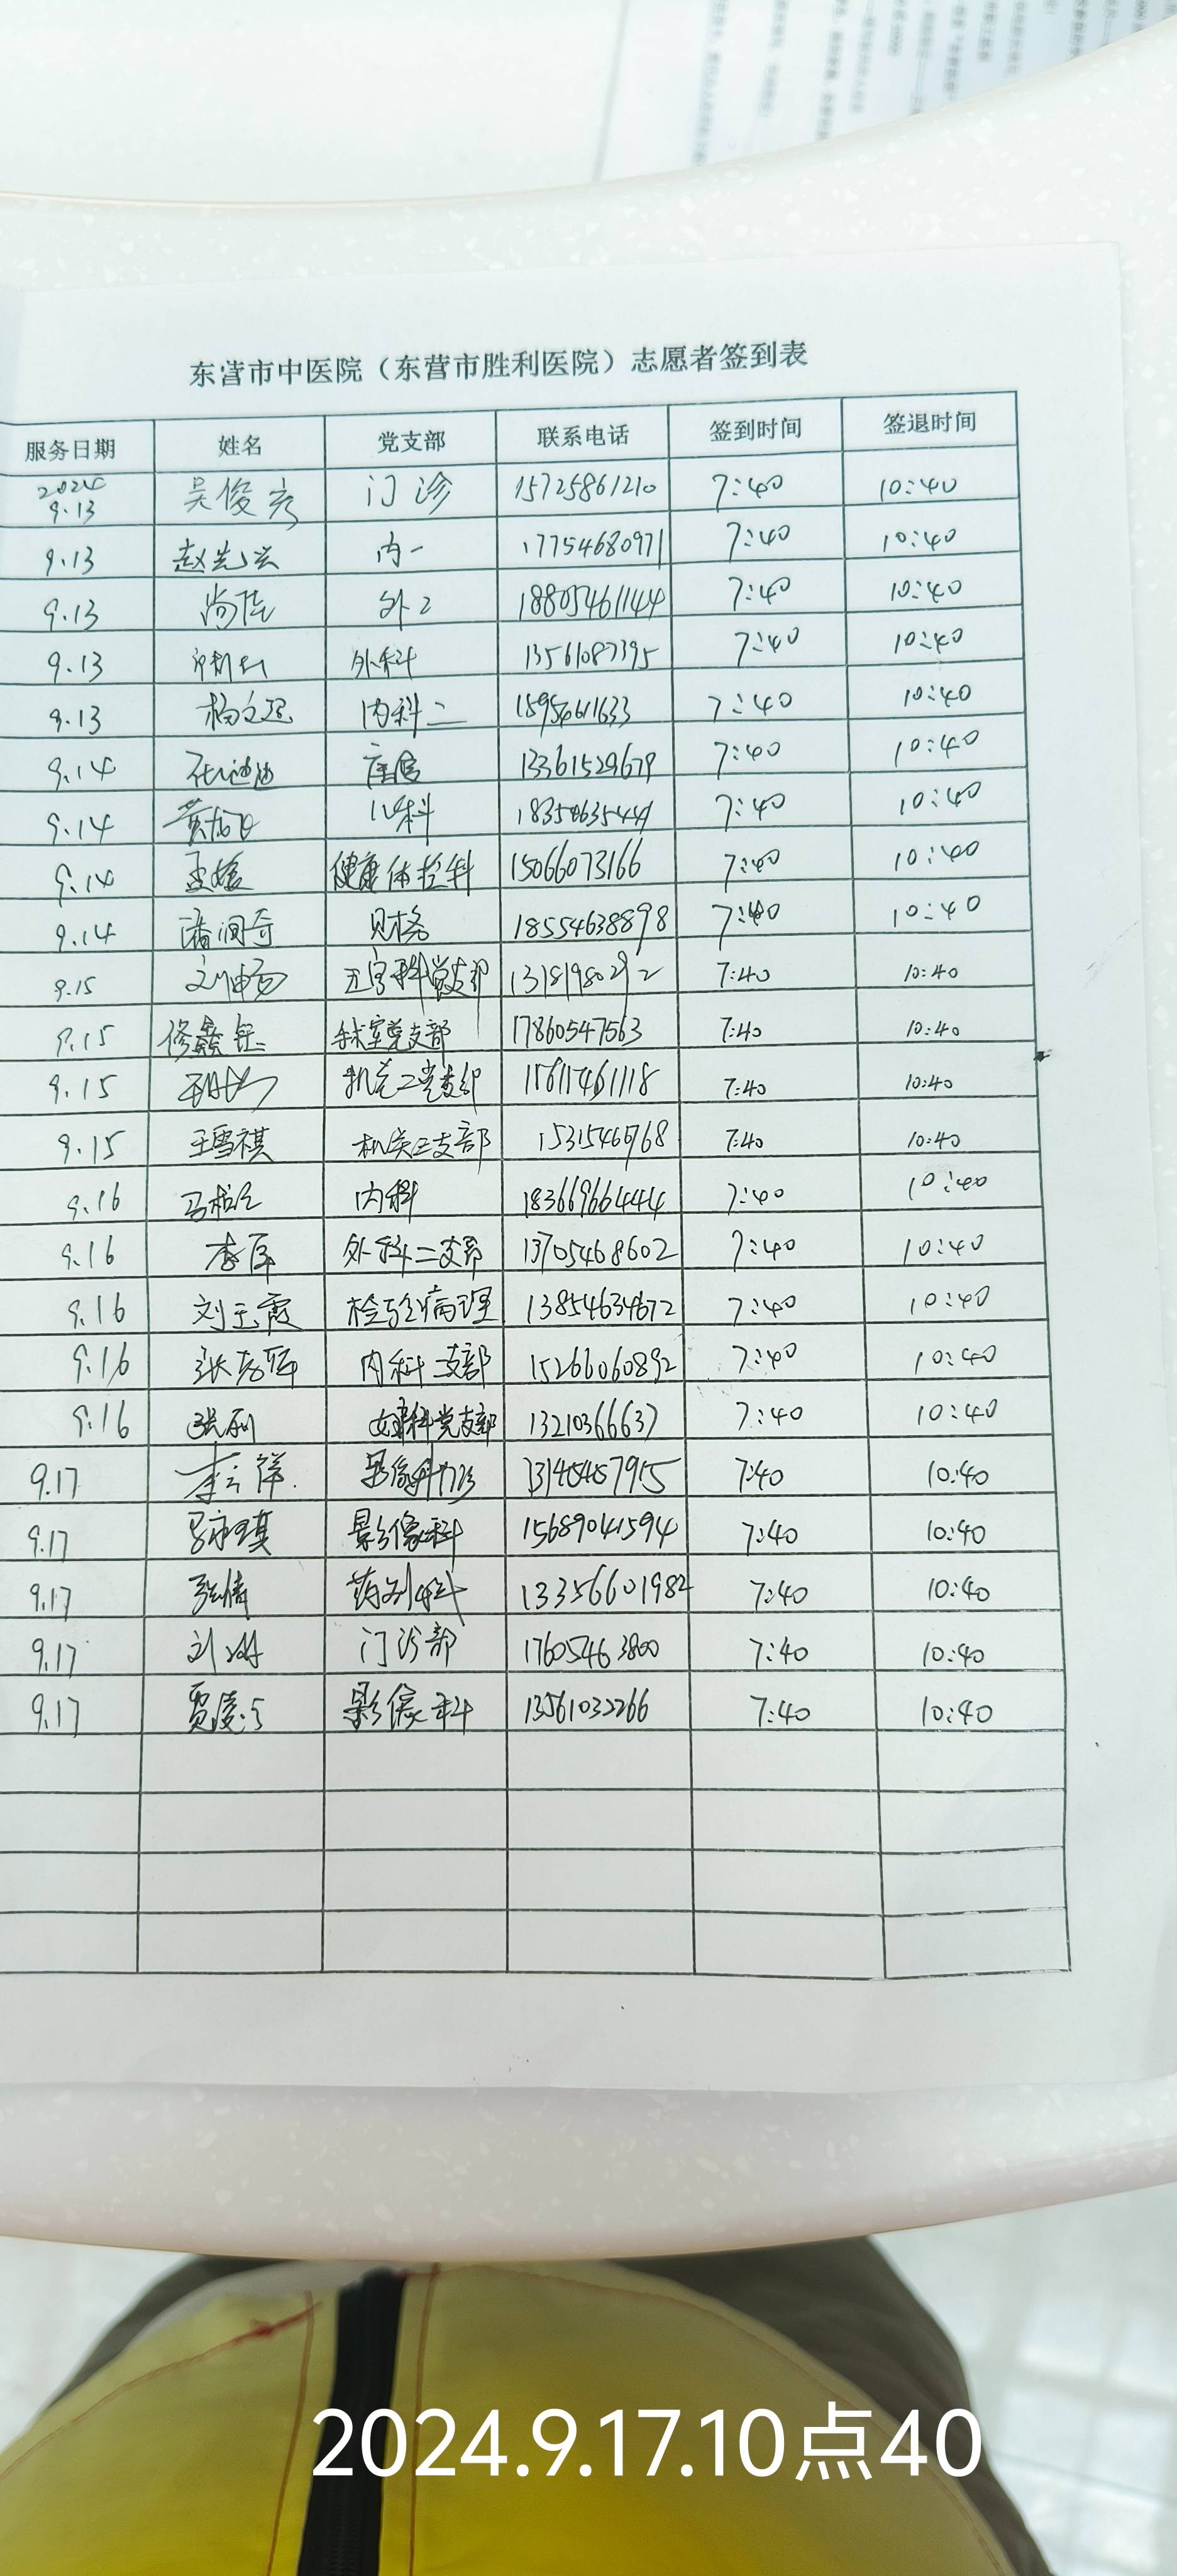 东营市中医院（东营市胜利医院）志愿者签到表
服务日期 姓名 党支部 联系电话 签到时间 签退时间
2024 9.13 吴俊彦 门诊 15725861210 7:40 10:40
9.13 内一 17754680971 7:40 10:40
9.13 尚佳 外2 18805461144 7:40 10:40
9.13 外科 13561087395 7:40 10:40
9.13 内科二 7:40 10:40
9.14 13361529679 7:40 10:40
9.14 儿科 7:40 10:40
9.14 孟媛 健康体检科 15066073166 7:40 10:40
9.14 潘润奇 财务 18554638898 7:40 10:40
9.15 13181980292 7:40 10:40
9.15 修鑫钰 手术室党支部 17860547563 7:40 10:40
9.15 机关二党支部 7:40 10:40
9.15 王雪祺 机关三支部 7:40 10:40
9.16 内科 18366966444 7:40 10:40
9.16 李厚 外科二支部 13705468602 7:40 10:40
9.16 刘玉霞 检验病理 13854634672 7:40 10:40
9.16 内科二支部 15266060892 7:40 10:40
9.16 张利 党支部 13210366637 7:40 10:40
9.17 李云祥 7:40 10:40
9.17 影像科 15689041594 7:40 10:40
9.17 张倩 药剂科 13356601982 7:40 10:40
9.17 刘琳 门诊部 17605463800 7:40 10:40
9.17 影像科 13561032266 7:40 10:40
2024.9.17.10点40